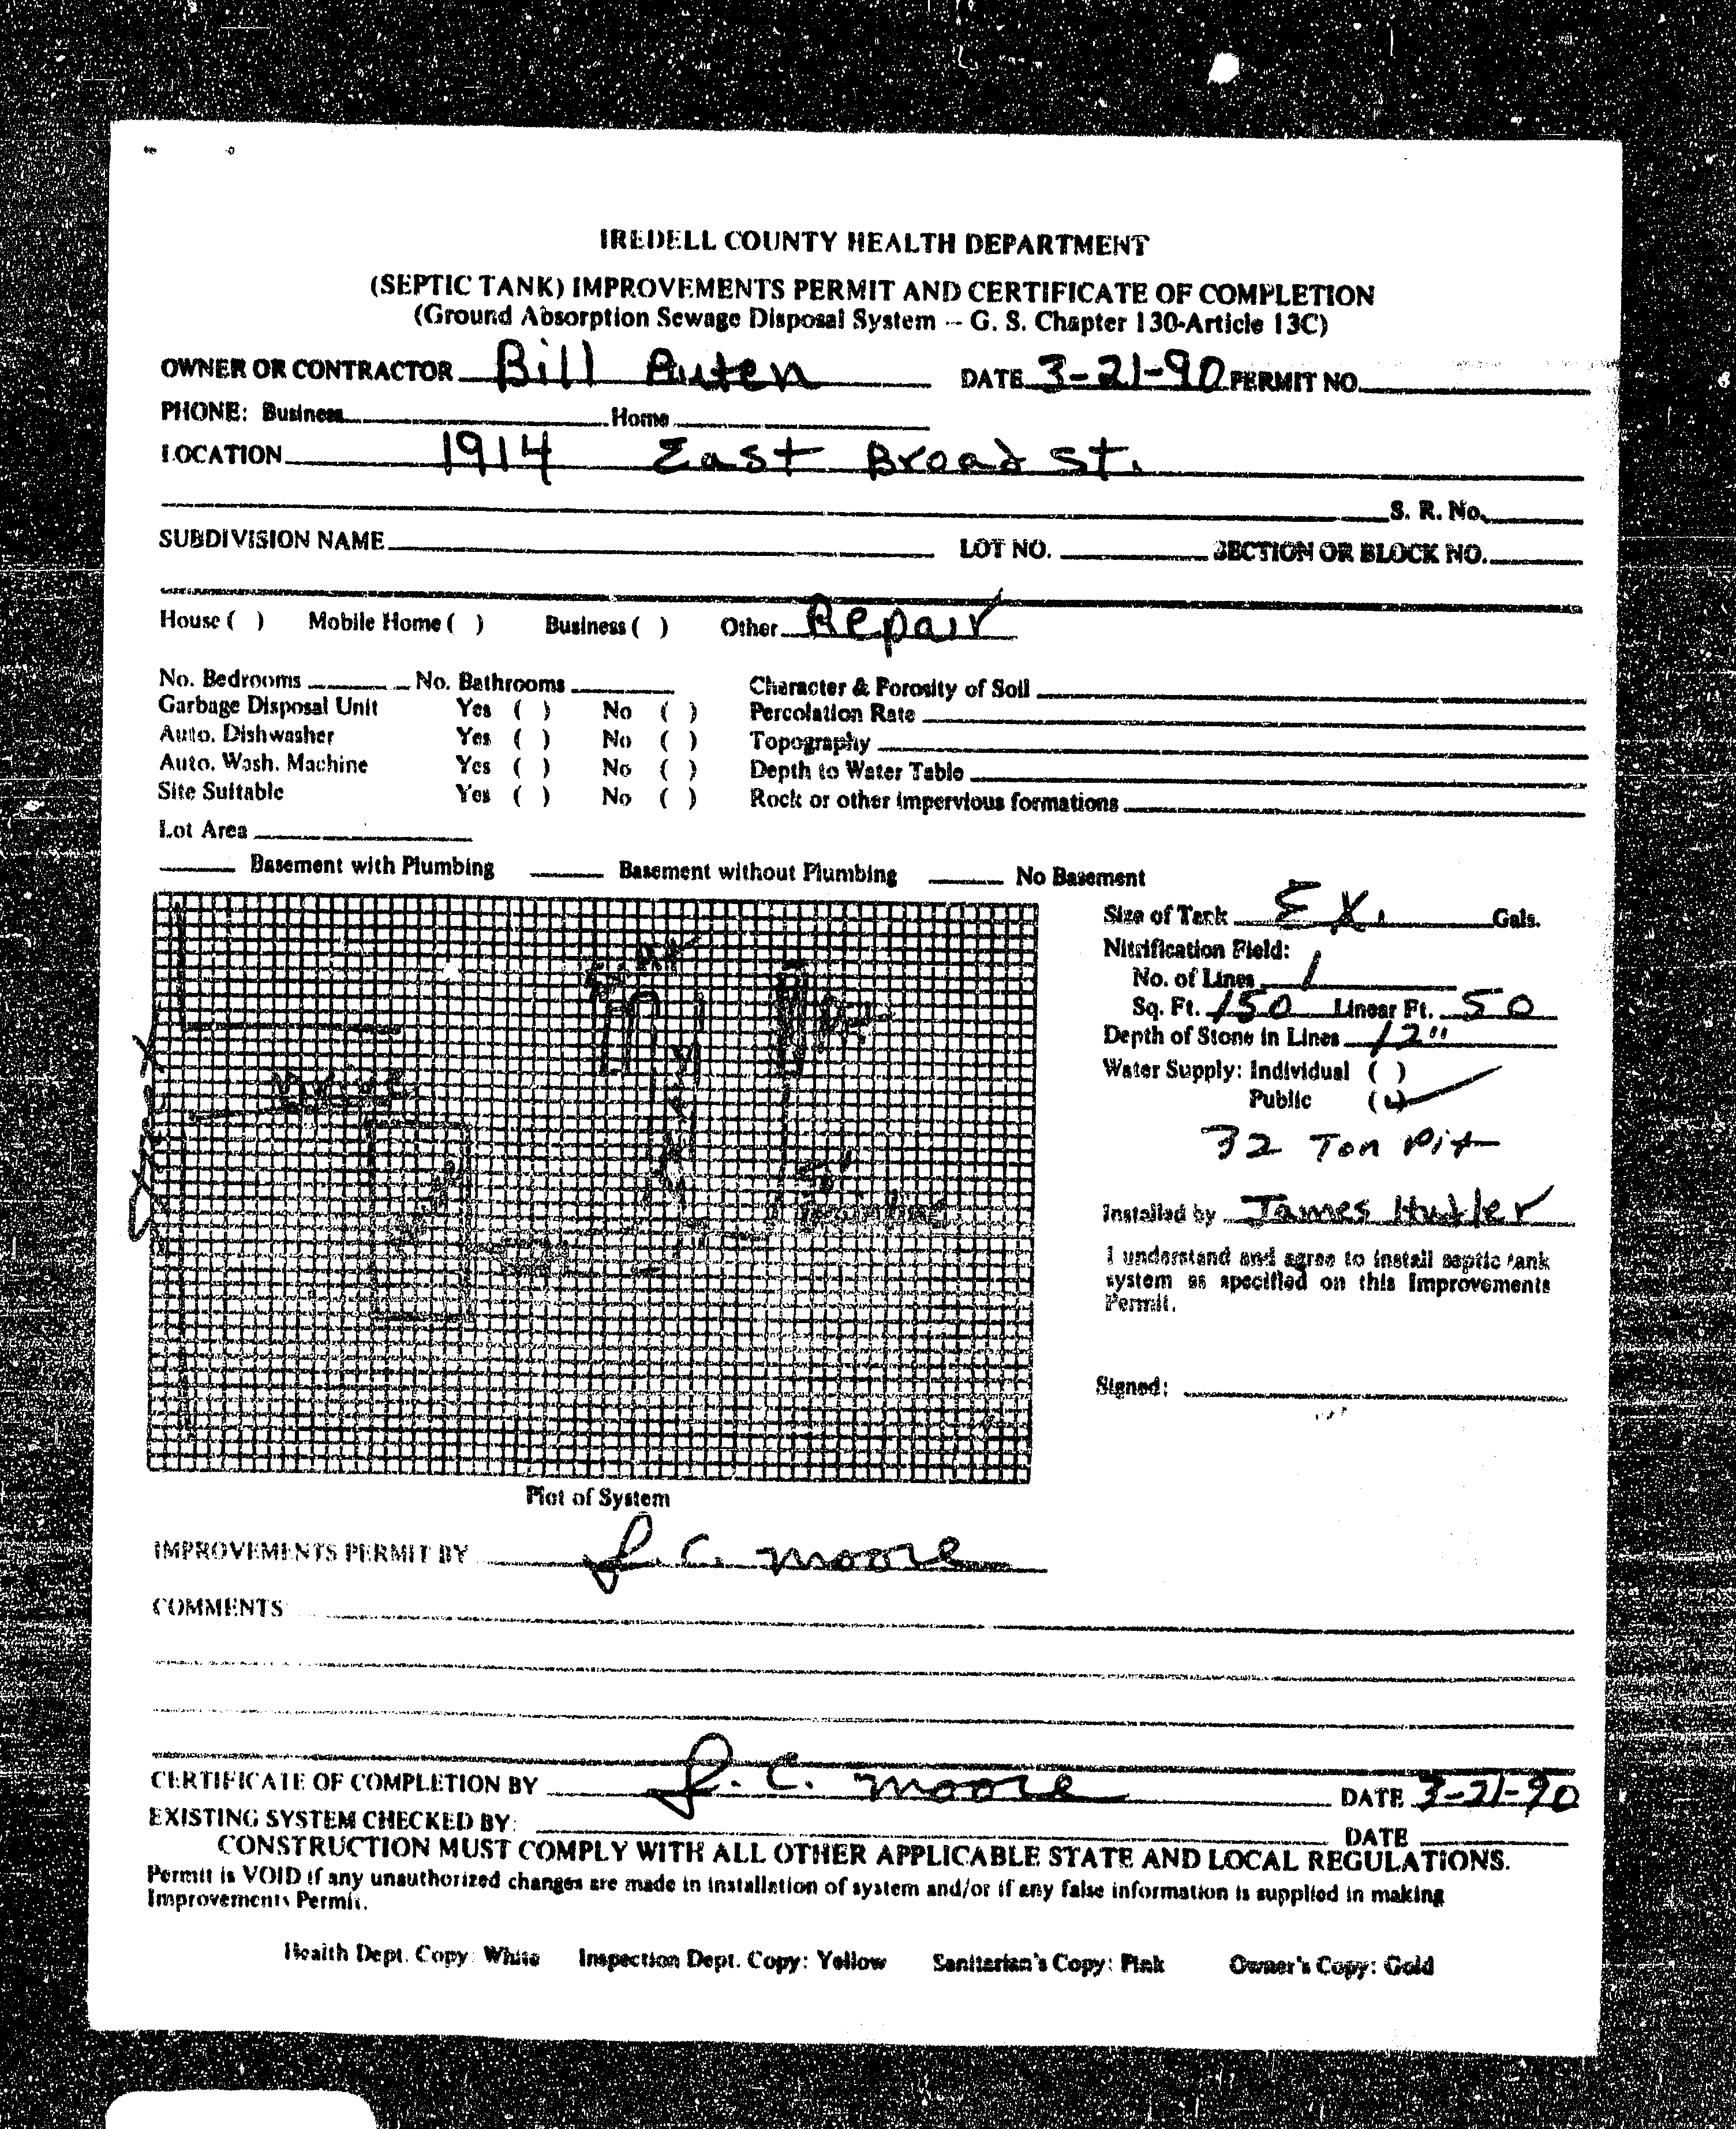 IREDELL COUNTY HEALTH DEPARTMENT
(SEPTIC TANK) IMPROVEMENTS PERMIT AND CERTIFICATE OF COMPLETION
(Ground Absorption Sewage Disposal System -- G. S. Chapter 130-Article 13C)
OWNER OR CONTRACTOR Bill Auten DATE 3-21-90 PERMIT NO.
PHONE: Business Home
LOCATION 1914 East Broad St.
S. R. No.
SUBDIVISION NAME LOT NO. SECTION OR BLOCK NO.
House ( ) Mobile Home ( ) Business ( ) Other Repair
No. Bedrooms No. Bathrooms Character & Porosity of Soil
Garbage Disposal Unit Yes ( ) No ( ) Percolation Rate
Auto. Dishwasher Yes ( ) No ( ) Topography
Auto. Wash. Machine Yes ( ) No ( ) Depth to Water Table
Site Suitable Yes ( ) No ( ) Rock or other impervious formations
Lot Area
Basement with Plumbing Basement without Plumbing No Basement
Size of Tank Ex. Gals.
Nitrification Field:
No. of Lines 1
Sq. Ft. 150 Linear Ft. 50
Depth of Stone in Lines 12"
Water Supply: Individual ( )
Public (✓)
32 Ton Pit
Installed by James
I understand and agree to install septic tank
system as specified on this Improvements
Permit.
Signed:
Street
Plot of System
IMPROVEMENTS PERMIT BY L. C. Moore
COMMENTS
CERTIFICATE OF COMPLETION BY L. C. Moore DATE 3-21-90
EXISTING SYSTEM CHECKED BY: DATE
CONSTRUCTION MUST COMPLY WITH ALL OTHER APPLICABLE STATE AND LOCAL REGULATIONS.
Permit is VOID if any unauthorized changes are made in installation of system and/or if any false information is supplied in making
Improvements Permit.
Health Dept. Copy: White Inspection Dept. Copy: Yellow Sanitarian's Copy: Pink Owner's Copy: Gold